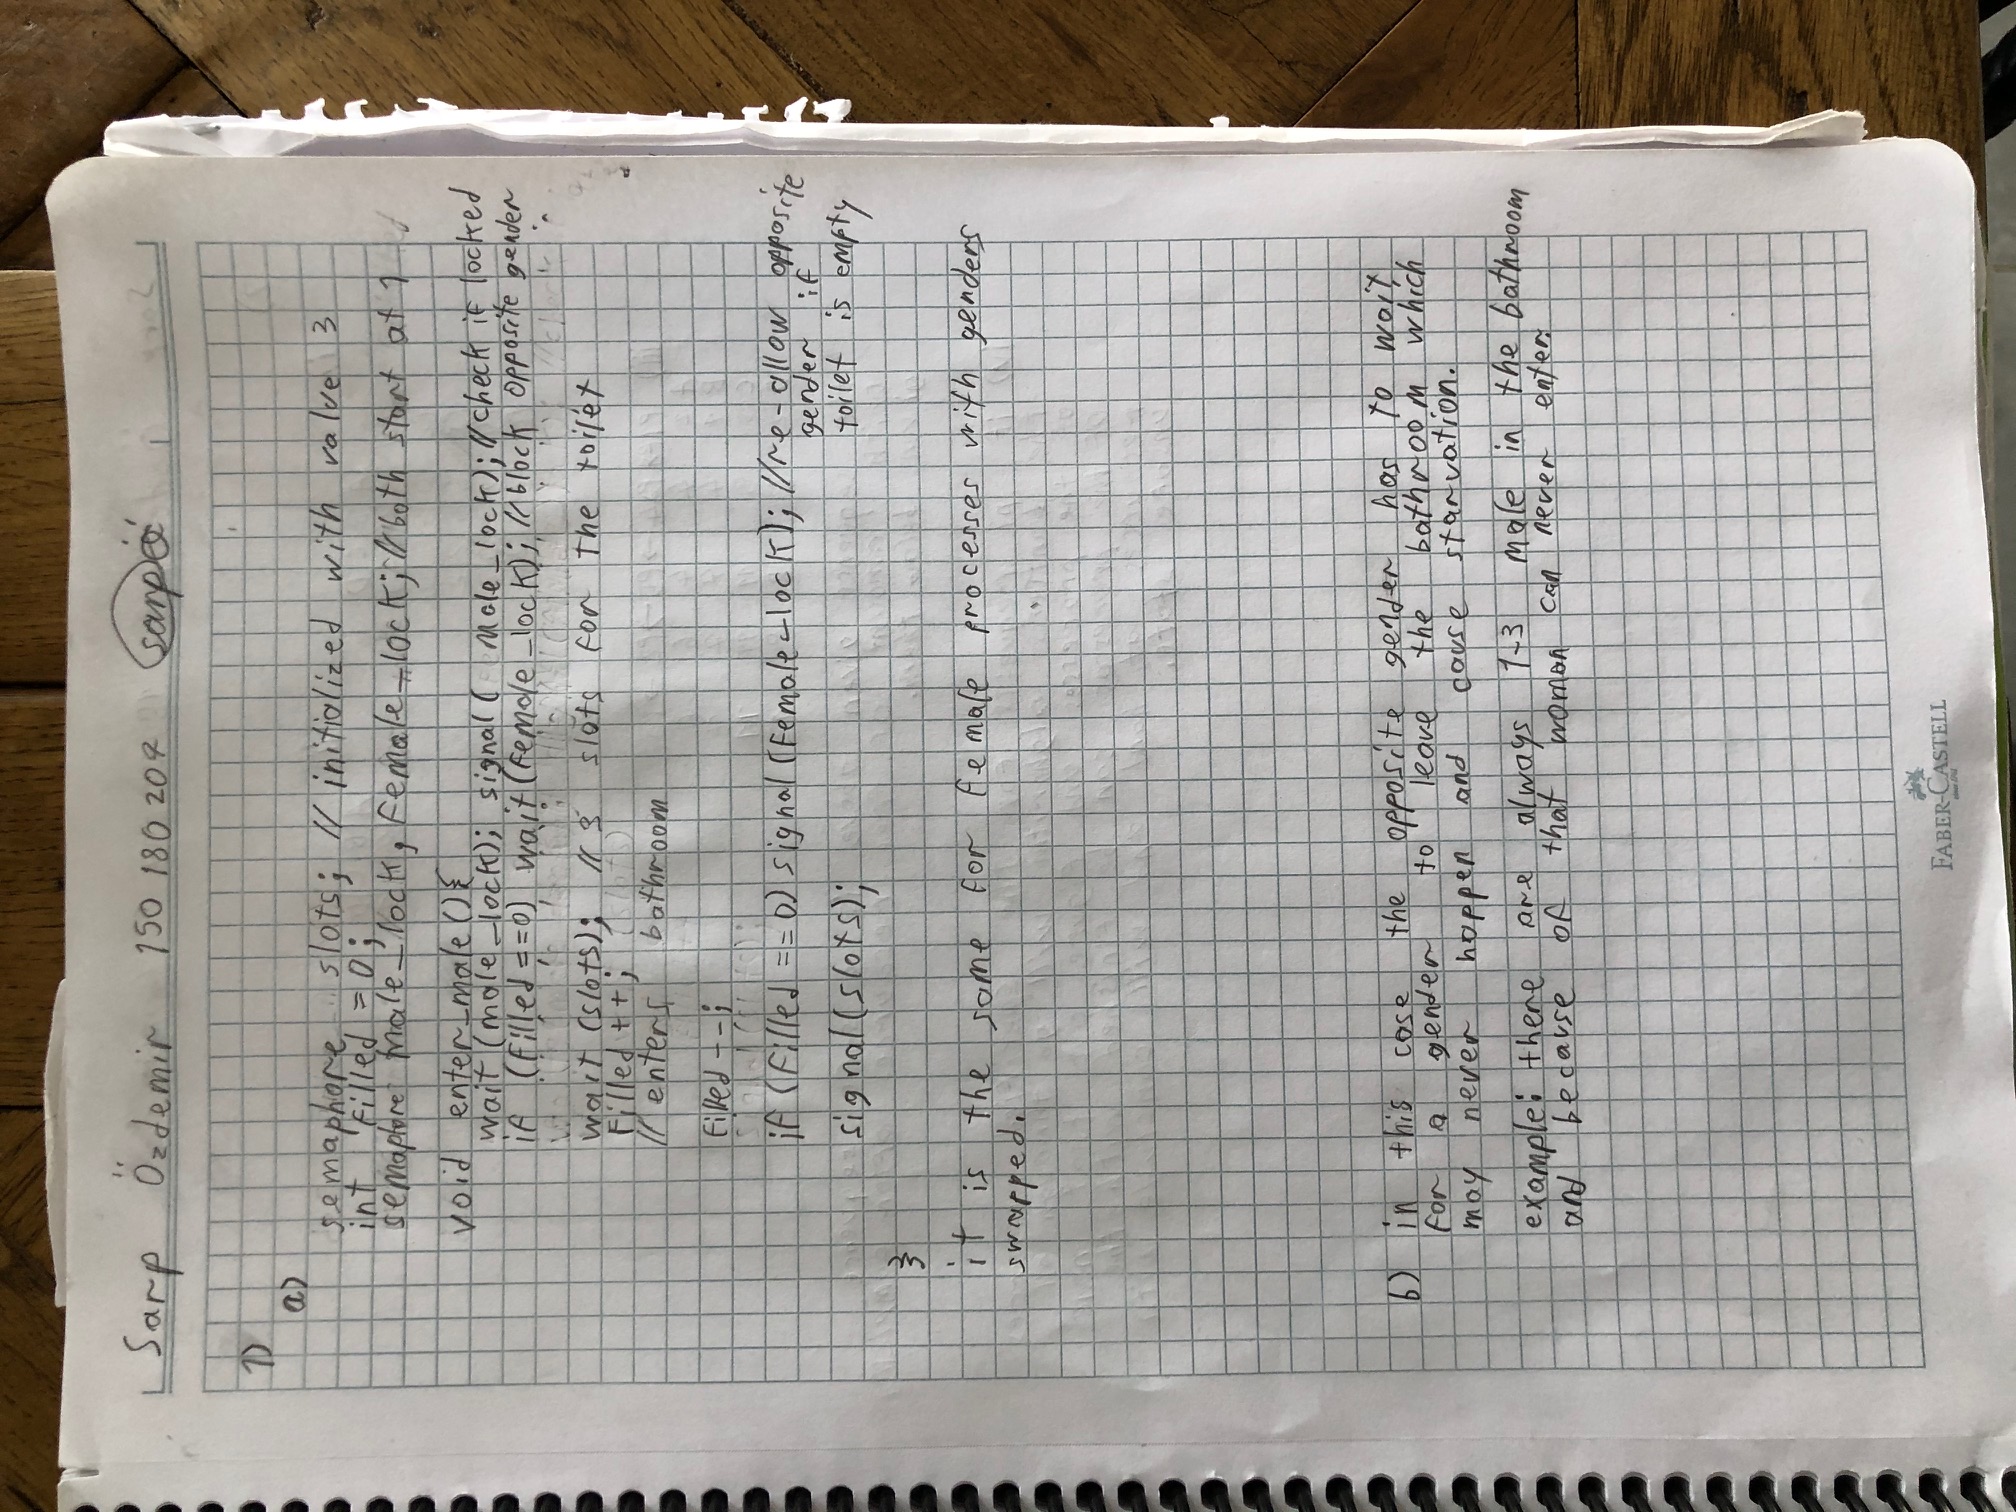 Sarp Özdemir 150 180 207 sarpö
1)
a)
semaphore slots; // initialized with value 3
int filled = 0;
semaphore male_lock, female_lock; // both start at 1
void enter_male(){
wait (male_lock); signal( male_lock); // check if locked
if (filled ==0) wait(female_lock); // block opposite gender
wait (slots); // 3 slots for the toilet
filled ++;
// enters bathroom
filled --;
if (filled == 0) signal (female_lock); // re-allow opposite
gender if
signal(slots); toilet is empty
}
it is the same for female processes with genders
swapped.
b) in this case the opposite gender has to wait
for a gender to leave the bathroom which
may never happen and cause starvation.
example: there are always 1-3 male in the bathroom
and because of that woman can never enter.
FABER-CASTELL
since 1761